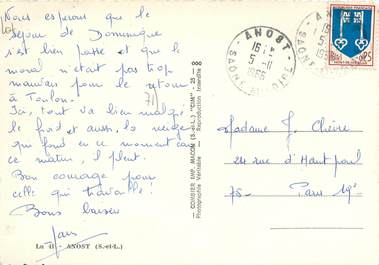 Nous espérons que le
séjour de Dominique
s'est bien passé et que le
moral n'était pas trop
mauvais pour le retour
à Toulon.
Ici, tout va bien malgré
le froid et aussi la neige
qui fond en ce moment car
ce matin, il pleut.
Bon courage pour
celle qui travaille !
Bons baisers
La 41 - ANOST (S.-et-L.)
COMBIER IMP. MACON (S.-et-L.) "CIM"
Photographie Véritable - Reproduction Interdite
ANOST
16 H
5 - 11
1966
SAONE
71
0,25
Madame J.
rue d'Hautpoul
75 - Paris 19e